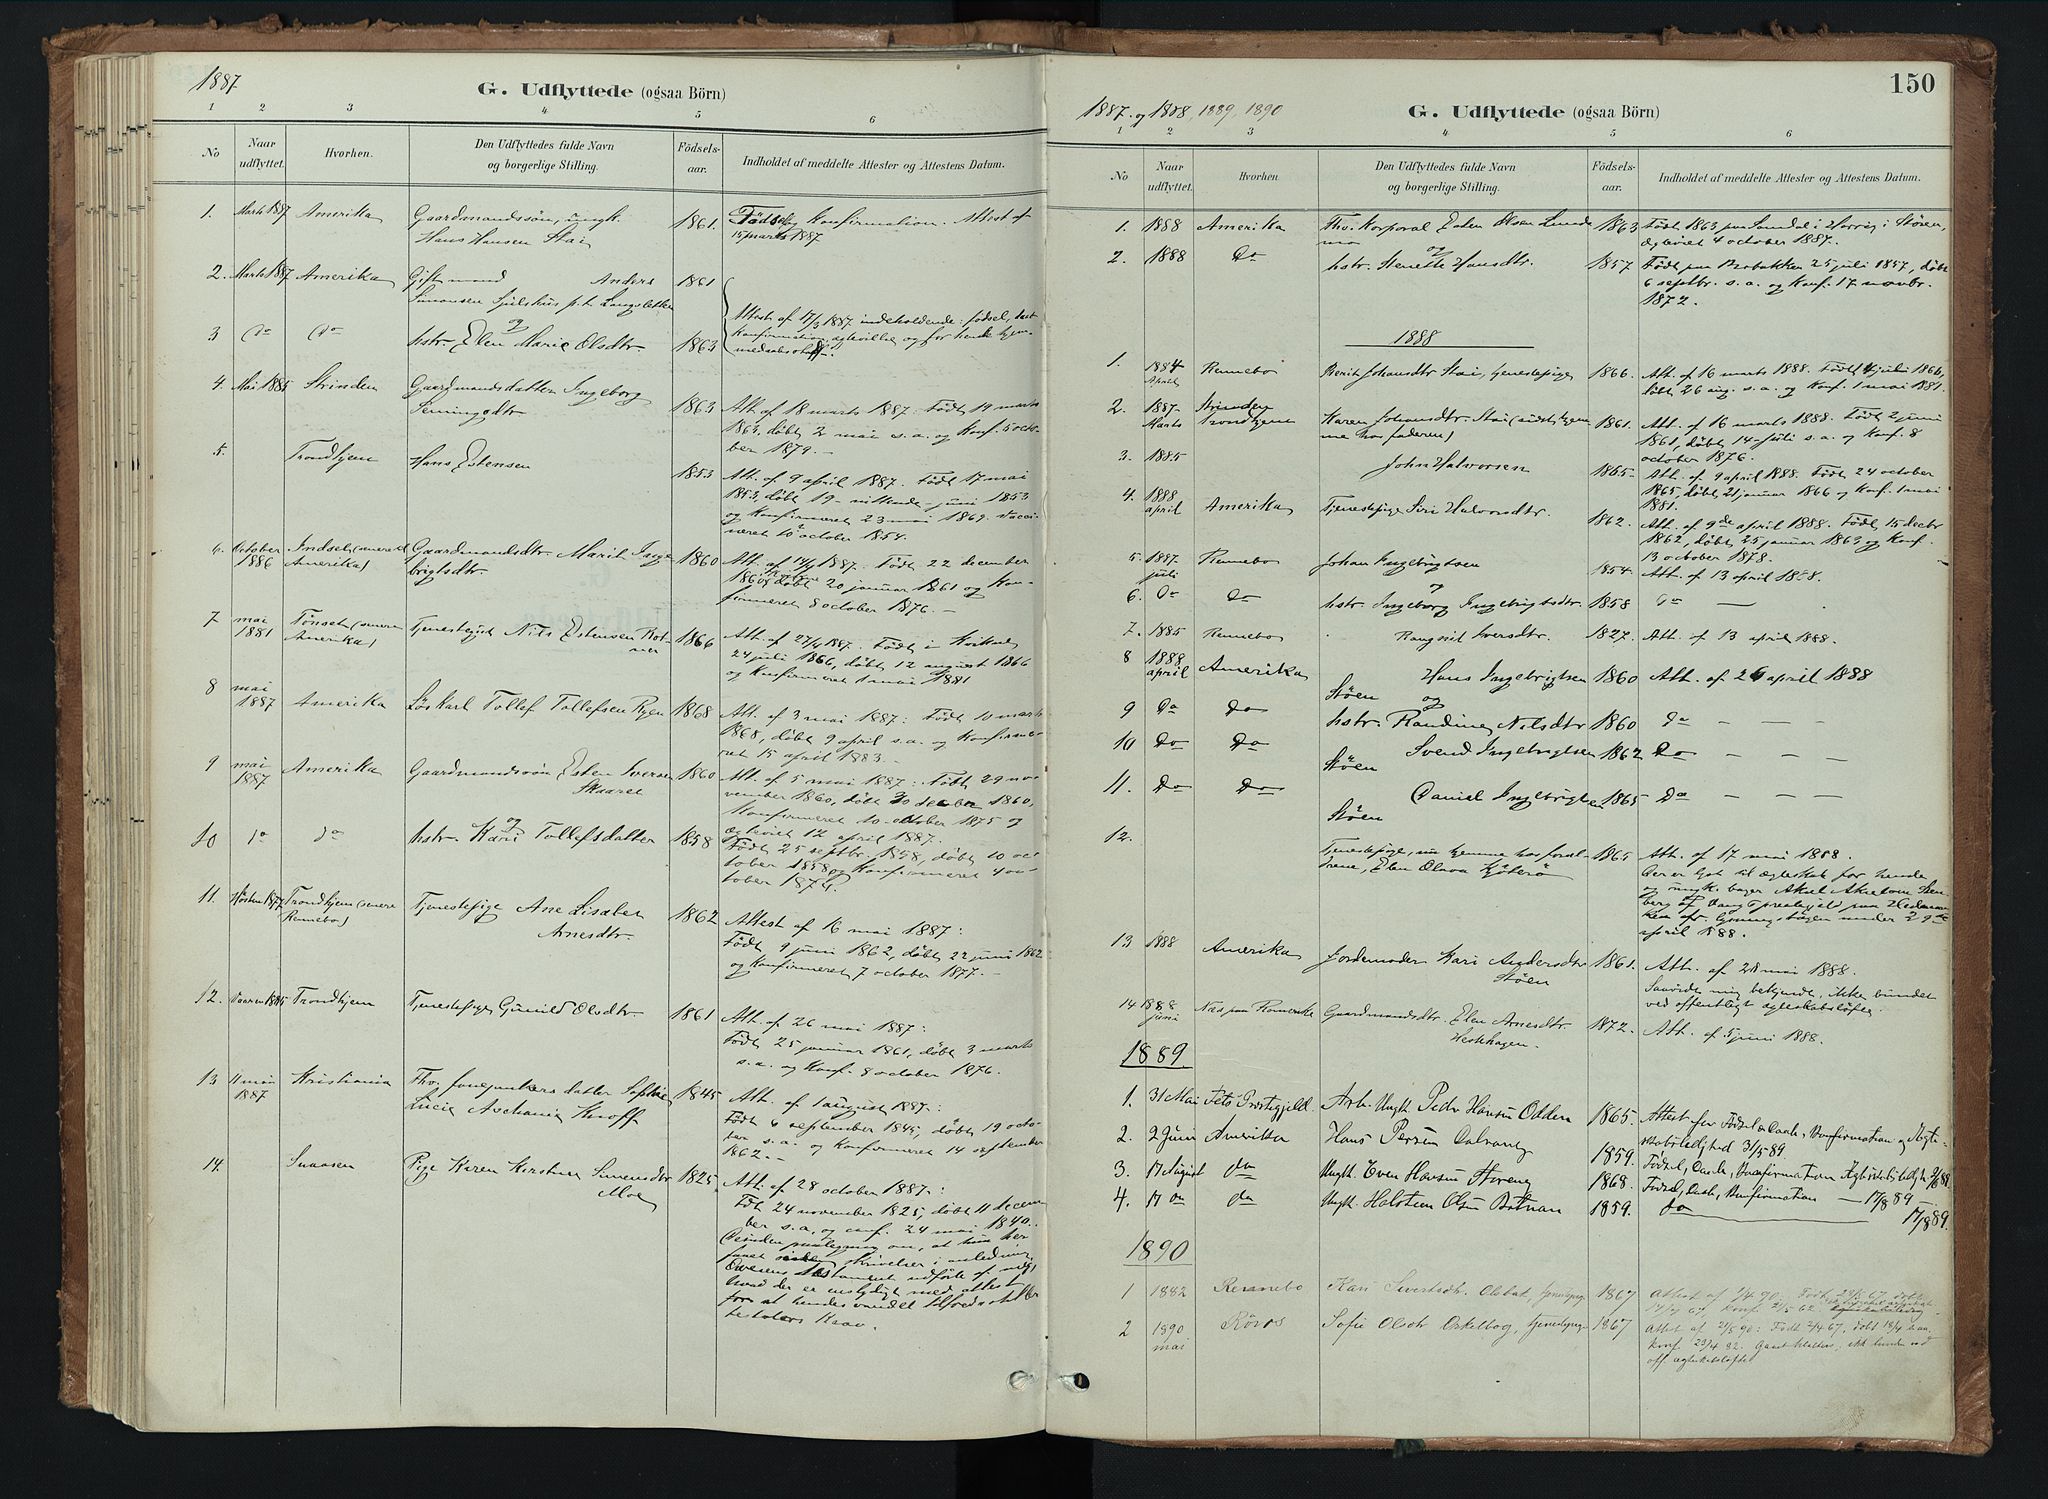 1887
G. Udflyttede (ogsaa Börn)
1 2 3 4 5 6
No Naar udflyttet. Hvorhen. Den Udflyttedes fulde Navn og borgerlige Stilling. Födsels-aar. Indholdet af meddelte Attester og Attestens Datum.
1. Marts 1887 Amerika Gaardmandssøn, ungk. 1861. Fødsel og Konfirmation. Attest af
Hans Hansen Stai 15 marts 1887
2. Marts 1887 Amerika Gift mand Anders 1861
Simonsen p.t. Langsletten
3 do do og hstr. Elen Marie Olsdtr. 1863 Attest af 17/3 1887 indeholdende: fødsel, daab
konfirmation, og for
4. Mai 1885 Strinden Gaardmandsdatter Ingeborg
1863 Att. af 18 marts 1887: Født 19 marts
1863, døbt 2 mai s.a. og Konf. 5 octo-
ber 1879. —
5. Trondhjem Hans Estensen
1853 Att. af 9 april 1887. Født 17 mai
1853, døbt 19 juni 1853
og Konfirmeret 23 mai 1869. Vacci-
neret 10 october 1854.
6. October 1886 Indset (senere Amerika) Gaardmandsdtr. Marit Inge- 1860 Att. af 14/4 1887. Født 22 december
brigtsdtr. 1860, døbt 20 januar 1861 og Kon-
firmeret 8 october 1876. —
7 mai 1881 Tønset (senere Amerika) Nils Estensen 1866 Att. af 27/4 1887. Født i Kvikne
24 juli 1866, døbt 12 august 1866
og Konfirmeret 1 mai 1881
8 mai 1887 Amerika Løskarl Tollef Tollefsen Ryen 1868 Att. af 3 mai 1887: Født 10 marts
1868, døbt 9 april s.a. og Konfirme-
ret 15 april 1883. —
9 mai 1887 Amerika Gaardmandssøn Esten Iversen 1860 Att. af 5 mai 1887: Født 29 no-
Skaaret vember 1860, døbt 30 december 1860,
Konfirmeret 10 october 1875 og
ægteviet 12 april 1887.
10 do do og hstr. Kari Tollefsdatter 1858 Født 25 septbr. 1858, døbt 10 oc-
tober 1858 og Konfirmeret 4 oc-
tober 1874.
11. Høsten 1877 Trondhjem (senere Rennebo) Tjenestepige Ane Lisabet 1862 Attest af 16 mai 1887:
Arnesdtr. Født 9 juni 1862, døbt 22 juni 1862
og Konfirmeret 7 october 1877. —
12. Vaaren 1885 Trondhjem Tjenestepige Gunild Olsdtr. 1861 Att. af 26 mai 1887:
Født 25 januar 1861, døbt 3 marts
s.a. og Konf. 8 october 1876.
13 11 mai 1887 Kristiania Fhv. datter Sophie 1845 Att. af 1 august 1887:
Lucie Aschania Knoff Født 6 september 1845, døbt 19 octo-
ber s.a. og Konfirmeret 14 september
1862. —
14. Snaasen Pige Karen Kirstine Simensdtr. 1825 Att. af 28 october 1887:
Moe Født 24 november 1825, døbt 11 decem-
ber s.a. og conf. 24 mai 1840.
om, at hun her
skrivelser i anledning
testamente udført af mig,
hvad der er enslydigt med attest
for at hendes vandel
Krav.
150
1887 og 1888, 1889, 1890
G. Udflyttede (ogsaa Börn)
1 2 3 4 5 6
No Naar udflyttet. Hvorhen. Den Udflyttedes fulde Navn og borgerlige Stilling. Födsels-aar. Indholdet af meddelte Attester og Attestens Datum.
1. 1888 Amerika Fhv. Korporal Esten Olsen Lunde- 1863 Født 1863 paa i Horrig i Støren,
mo ægteviet 4 october 1887.
2. 1888 Do og hstr. Henrette Hansdtr. 1857. Født paa Brobakken 25 juli 1857, døbt
6 septbr. s.a. og Konf. 17 novbr.
1872.
1888
1. 1884 April Rennebo Berit Johansdtr Stai, tjenestepige 1866. Att. af 16 marts 1888. Født 4 juli 1866,
døbt 26 aug. s.a. og Konf. 1 mai 1881.
2. 1887 Marts Strinden Trondhjem Karen Johansdtr. Stai (sidst hjem- 1861. Att. af 16 marts 1888. Født 2 juni
me hos faderen) 1861, døbt 14 juli s.a. og Konf. 8
october 1876.
3. 1885 John Halvorsen 1865. Att. af 9 april 1888. Født 24 october
1865, døbt 21 januar 1866 og Konf. 1 mai
1881.
4. 1888 april Amerika Tjenestepige Siri Halvorsdtr. 1862. Att. af 9de april 1888. Født 15 decbr
1862, døbt 25 januar 1863 og Konf.
13 october 1878.
5. 1887 juli Rennebo Johan Ingebrigtsen 1854. Att. af 13 april 1888.
6. Do Do og hstr. Ingeborg Ingebrigtsdtr. 1858 Do —
7. 1885 Rennebo Rangnil Iversdtr. 1827. Att. af 13 april 1888.
8 1888 april Amerika Hans Ingebrigtsen 1860 Att. af 26 april 1888
Støen og
9 Do Do hstr. Randine Nilsdtr 1860 Do — — —
10 Do Do Svend Ingebrigtsen 1862 Do — — —
Støen
11. Do Do Daniel Ingebrigtsen 1865 Do — — —
Støen
12. Tjenestepige, nu hjemme hos foræl- 1865 Att. af 17 mai 1888.
drene, Elen Olava Der er lyst til ægteskab for hende
og ungk. bager Axel
berg af Vang præstegjeld paa Hedemar-
ken under 29de
april 1888.
13 1888 Amerika Jordemoder Kari Andersdtr 1861. Att. af 28 mai 1888.
Støen Saavidt mig bekjendt, ikke bundet
ved offentligt ægteskabsløfte.
14 1888 juni Næs paa Romerike Gaardmandsdtr. Elen Arnesdtr. 1872. Att. af 5 juni 1888.
Hestehagen.
1889
1. 31 Mai Fets Præstegjeld. Arb. Ungk. Peder Hansen Odden 1865. Attest for Fødsel, Daab, Konfirmation og Ægte-
skabsledighed 31/5 89
2. 2 Juni Amerika Hans Persen Dalvang 1859. Fødsel, Daab, Konfirmation 2/6 89
3. 17 August do Ungk. Even Hansen Horeng 1868. Fødsel, Daab, Konfirmation — 17/8 89 —
4. 17 do do Ungk. Halstein Olsen Botnan 1859. do 17/8 89.
1890
1 1882 Rennebo Kari Sivertsdtr. Olsbak, tjenestepige 1867 Attest af 1/4 90: Født 29/5 67, døbt
14/7 67, konf. 21/5 82
2 1890 mai Röros Sofie Olsdtr Eskelbog, tjenestepige 1867 Attest af 21/5 90: Født 2/4 67, døbt 18/4 s.a.,
Konf. 23/4 82. ikke bunden ved
off. ægteskabsløfte